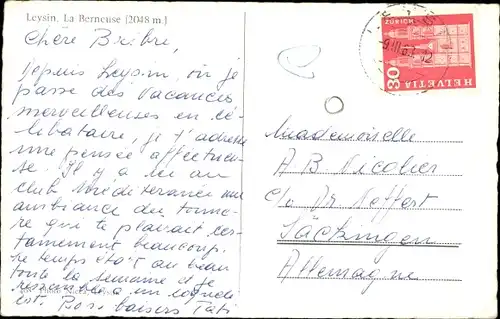 Leysin, La Berneuse [2048 m.]
Chère Bicibre,
Depuis Leysin, où je
passe des vacances
merveilleuses en cé-
libataire, je t'adresse
une pensée affectueu-
se. Il y a eu au
club Méditerranée une
ambiance du tonner-
re qui te plairait cer-
tainement beaucoup.
Le temps était au beau
toute la semaine et je
ressemble à un
est. Bons baisers Tati
HELVETIA
30
ZÜRICH
Mademoiselle
A B Nicolier
c/o Dr. Seffert
Säckingen
Allemagne